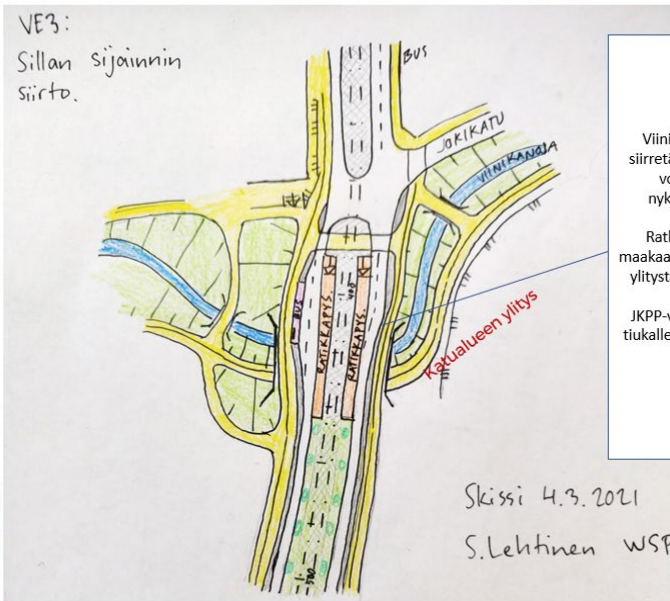 VE3:
Sillan sijainnin
siirto.
BUS
JOKIKATU
VIINIKANOJA
BUS
RATIKKAPYS.
RATIKKAPYS.
Katualueen ylitys
Viini
siirretä
vo
nyk
maakaa
ylityst
JKPP-v
tiukalle
Skissi 4.3.2021
S.Lehtinen WSP